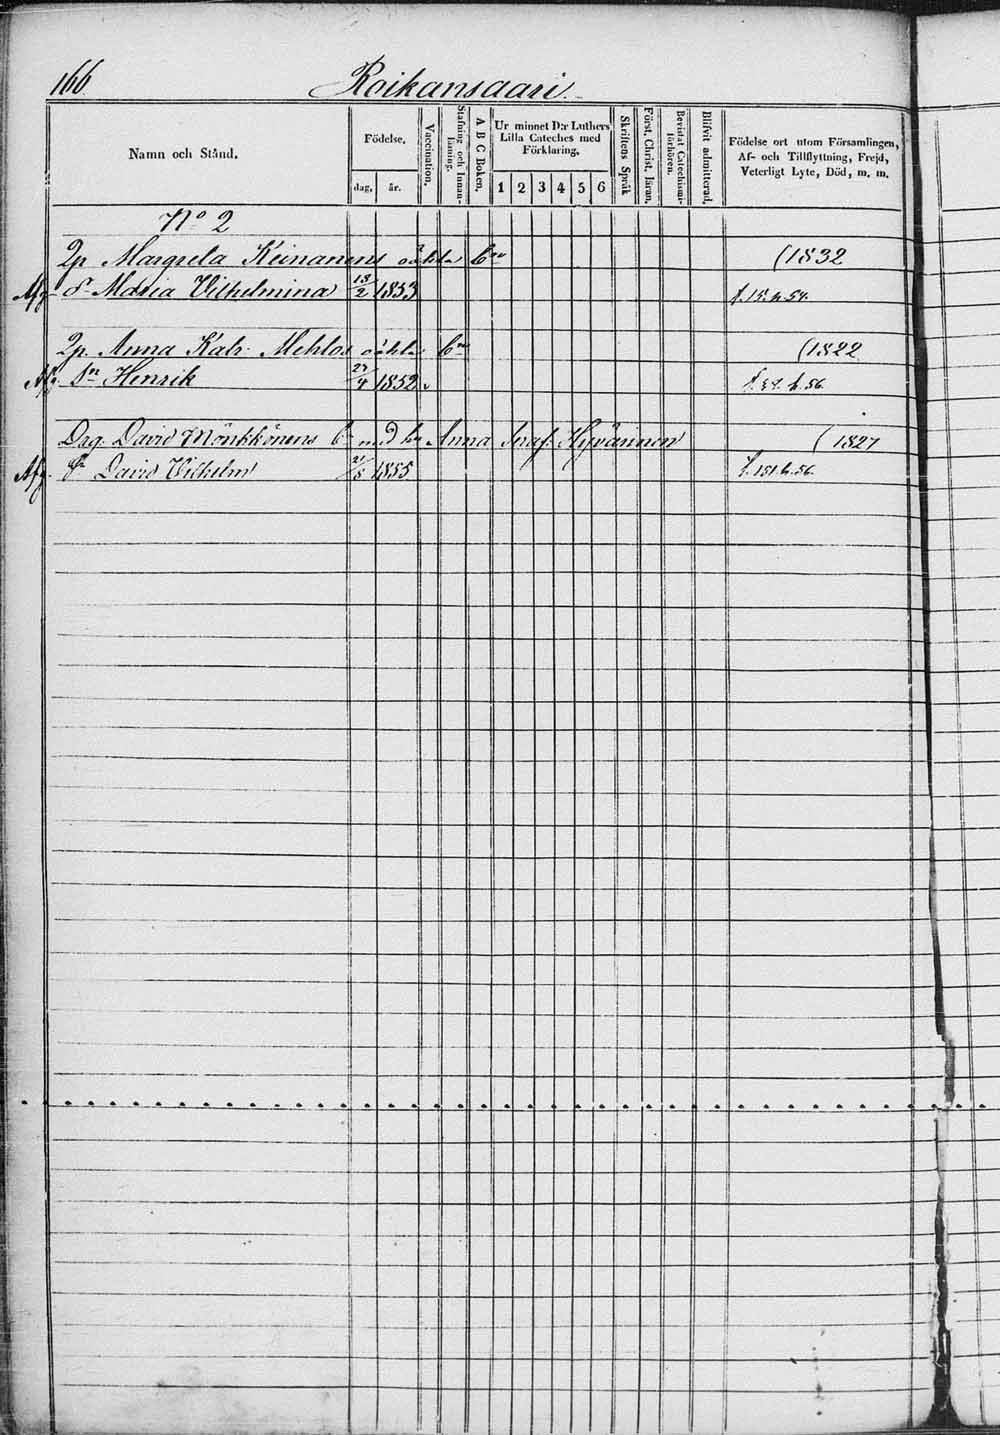 166
Roikansaari.
Namn och Stånd.
Födelse.
dag, år.
Vaccination.
Stafning och Innan-läsning.
A B C Boken.
Ur minnet D:r Luthers
Lilla Cateches med
Förklaring,
1 2 3 4 5 6
Skriftens Språk
Först. Christ. läran.
Bevistat Catechismi-förhören.
Blifvit admitterad.
Födelse ort utom Församlingen,
Af- och Tillflyttning, Frejd,
Veterligt Lyte, Död, m. m.
No 2
Margreta Keinanens oäkta (1832
dr Maria Vilhelmina 13/2 1853
Anna Katr. Mehlos oäkta (1822
Sn Henrik 1852
Drg. David Mönkkönens med Anna Hyvännen (1827
David Vilhelm 1855 151 h. 56.